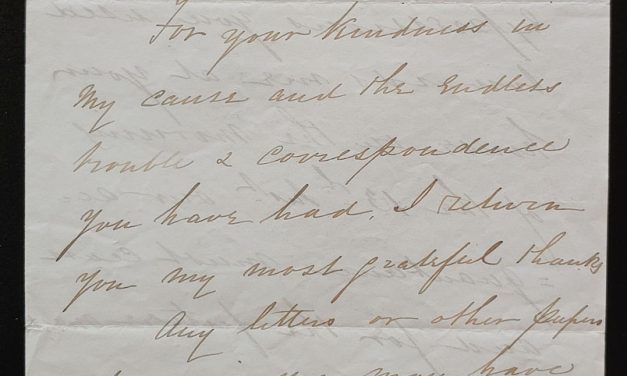 For your kindness in
my cause and the endless
trouble & correspondence
you have had, I return
you my most grateful thanks
Any letters or other papers
you may have